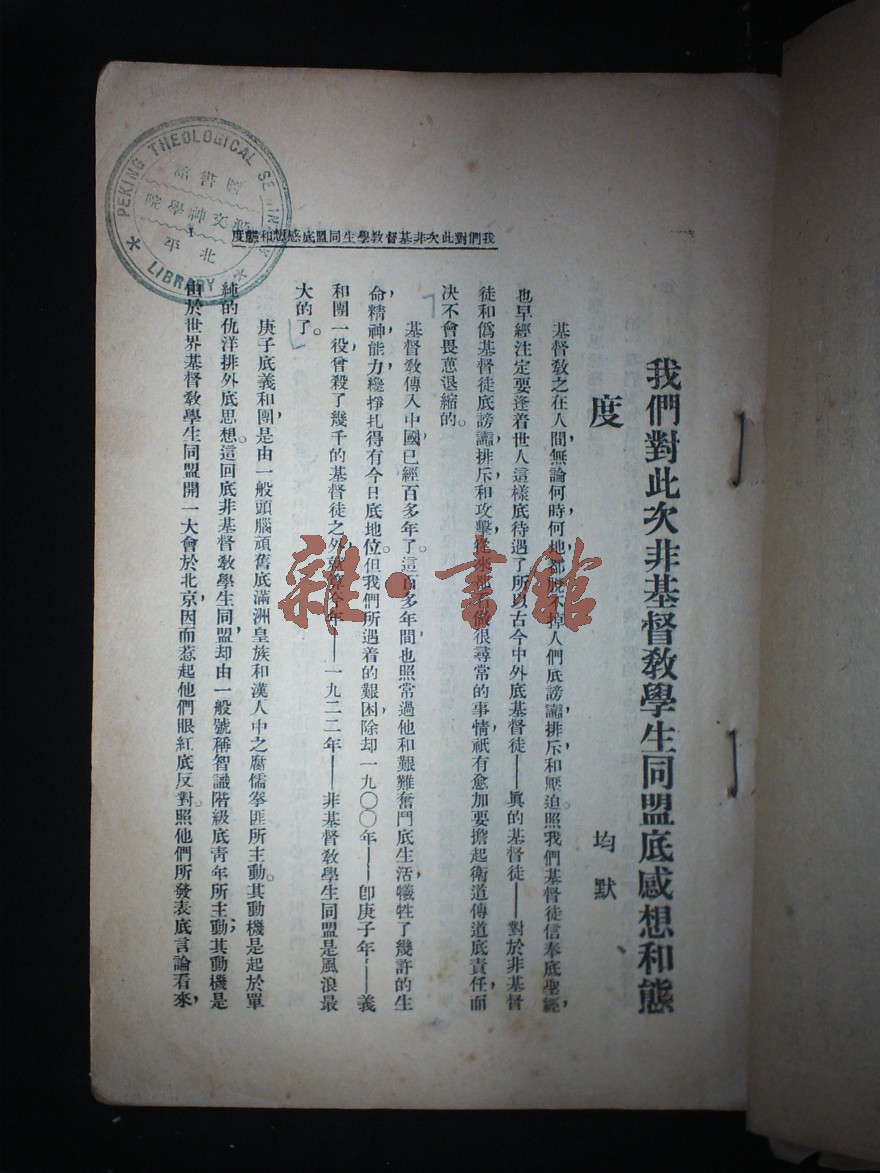 我們對此次非基督教學生同盟底感想和態
度
均默
基督教之在人間，無論何時何地，都脫不掉人們底謗讟，排斥和壓迫。照我們基督徒信奉底聖經，
也早經注定要逢着世人這樣底待遇了。所以古今中外底基督徒——眞的基督徒——對於非基督
徒和僞基督徒底謗讟，排斥和攻擊，從來都看做很尋常的事情，祇有愈加要擔起衛道傳道底責任，而
决不會畏葸退縮的。
基督教傳入中國，已經百多年了。這百多年間，也照常過他和艱難奮鬥底生活，犧牲了幾許的生
命，精神，能力，纔掙扎得有今日底地位。但我們所遇着的艱困，除却一九〇〇年——卽庚子年——義
和團一役，曾殺了幾千的基督徒之外，就算今年——一九二二年——非基督教學生同盟是風浪最
大的了。
庚子底義和團，是由一般頭腦頑舊底滿洲皇族和漢人中之腐儒拳匪所主動。其動機是起於單
純的仇洋排外底思想。這回底非基督教學生同盟，却由一般號稱智識階級底靑年所主動；其動機是
由於世界基督教學生同盟開一大會於北京，因而惹起他們眼紅底反對。照他們所發表底言論看來，
我們對此次非基督教學生同盟底感想和態度
一
PEKING THEOLOGICAL SEMINARY
圖書館
滙文神學院
北平
LIBRARY
雜·書館